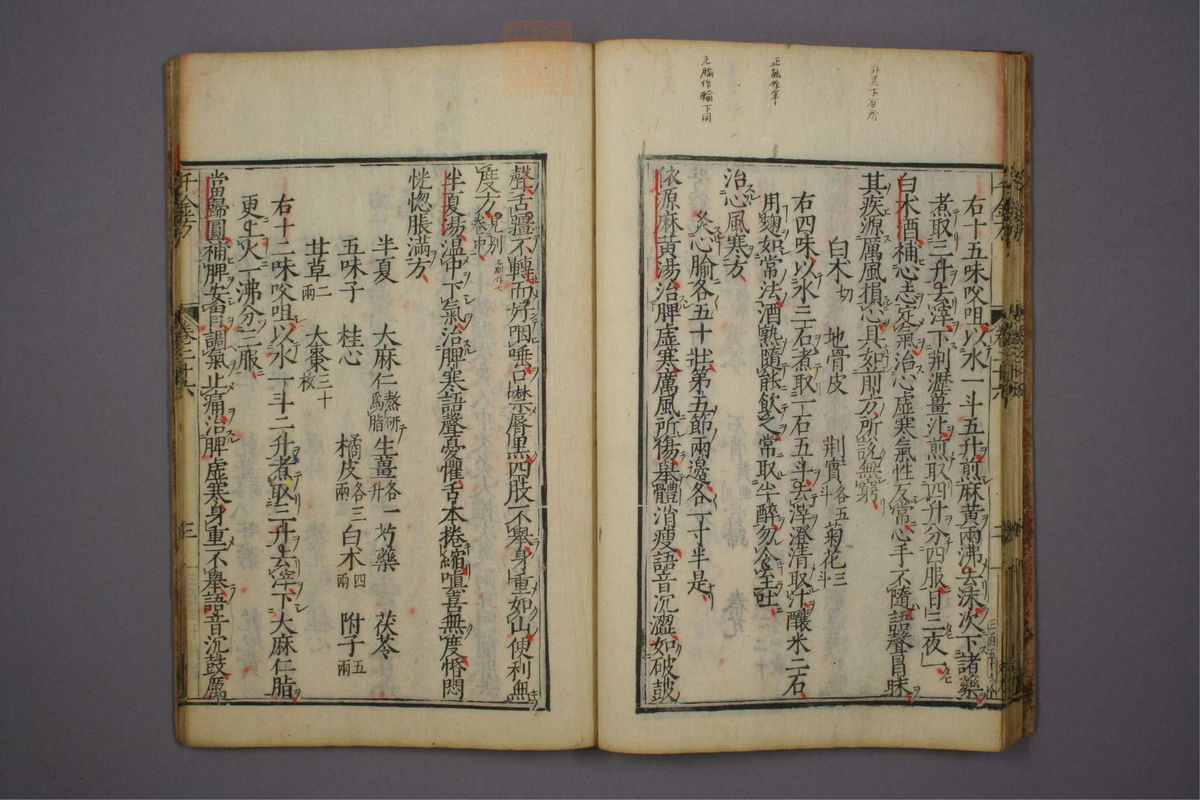 外其下有所
正融作年
元腧作輸下同
右十五味㕮咀以水一斗五升煎麻黃兩沸去沫次下諸藥
煮取三升去滓下荆瀝薑汁煎取四升分四服日三夜一
白术酒補心志定氣治心虛寒氣性反常心手不隨語聲冒昧
其疾源厲風損心具如前方所說無窮
白术切 地骨皮 荆實各五斗 菊花三斗
右四味以水三石煮取一石五斗去滓澄清取汁釀米二石
用麴如常法酒熟隨能飲之常取半醉勿令至吐
治心風寒方
灸心腧各五十壯第五節兩邊各一寸半是
依源麻黃湯治脾虛寒厲風所傷舉體消瘦語音沉澀如破鼓
聲舌彊不轉而好咽唾口噤脣黑四肢不舉身重如山便利無
度方見別卷中
半夏湯溫中下氣治脾寒語聲憂懼舌本捲縮嗔喜無度惛悶
恍惚脹滿方
半夏 大麻仁熬研爲脂 生薑各一升 芍藥 茯苓
五味子 桂心 橘皮各三兩 白术四兩 附子五兩
甘草二兩 大棗三十枚
右十二味㕮咀以水一斗二升煮取三升去滓下大麻仁脂
更上火一沸分三服
當歸圓補脾安胃調氣止痛治脾虛寒身重不舉語音沉鼓厲
千金方
卷二十六
三